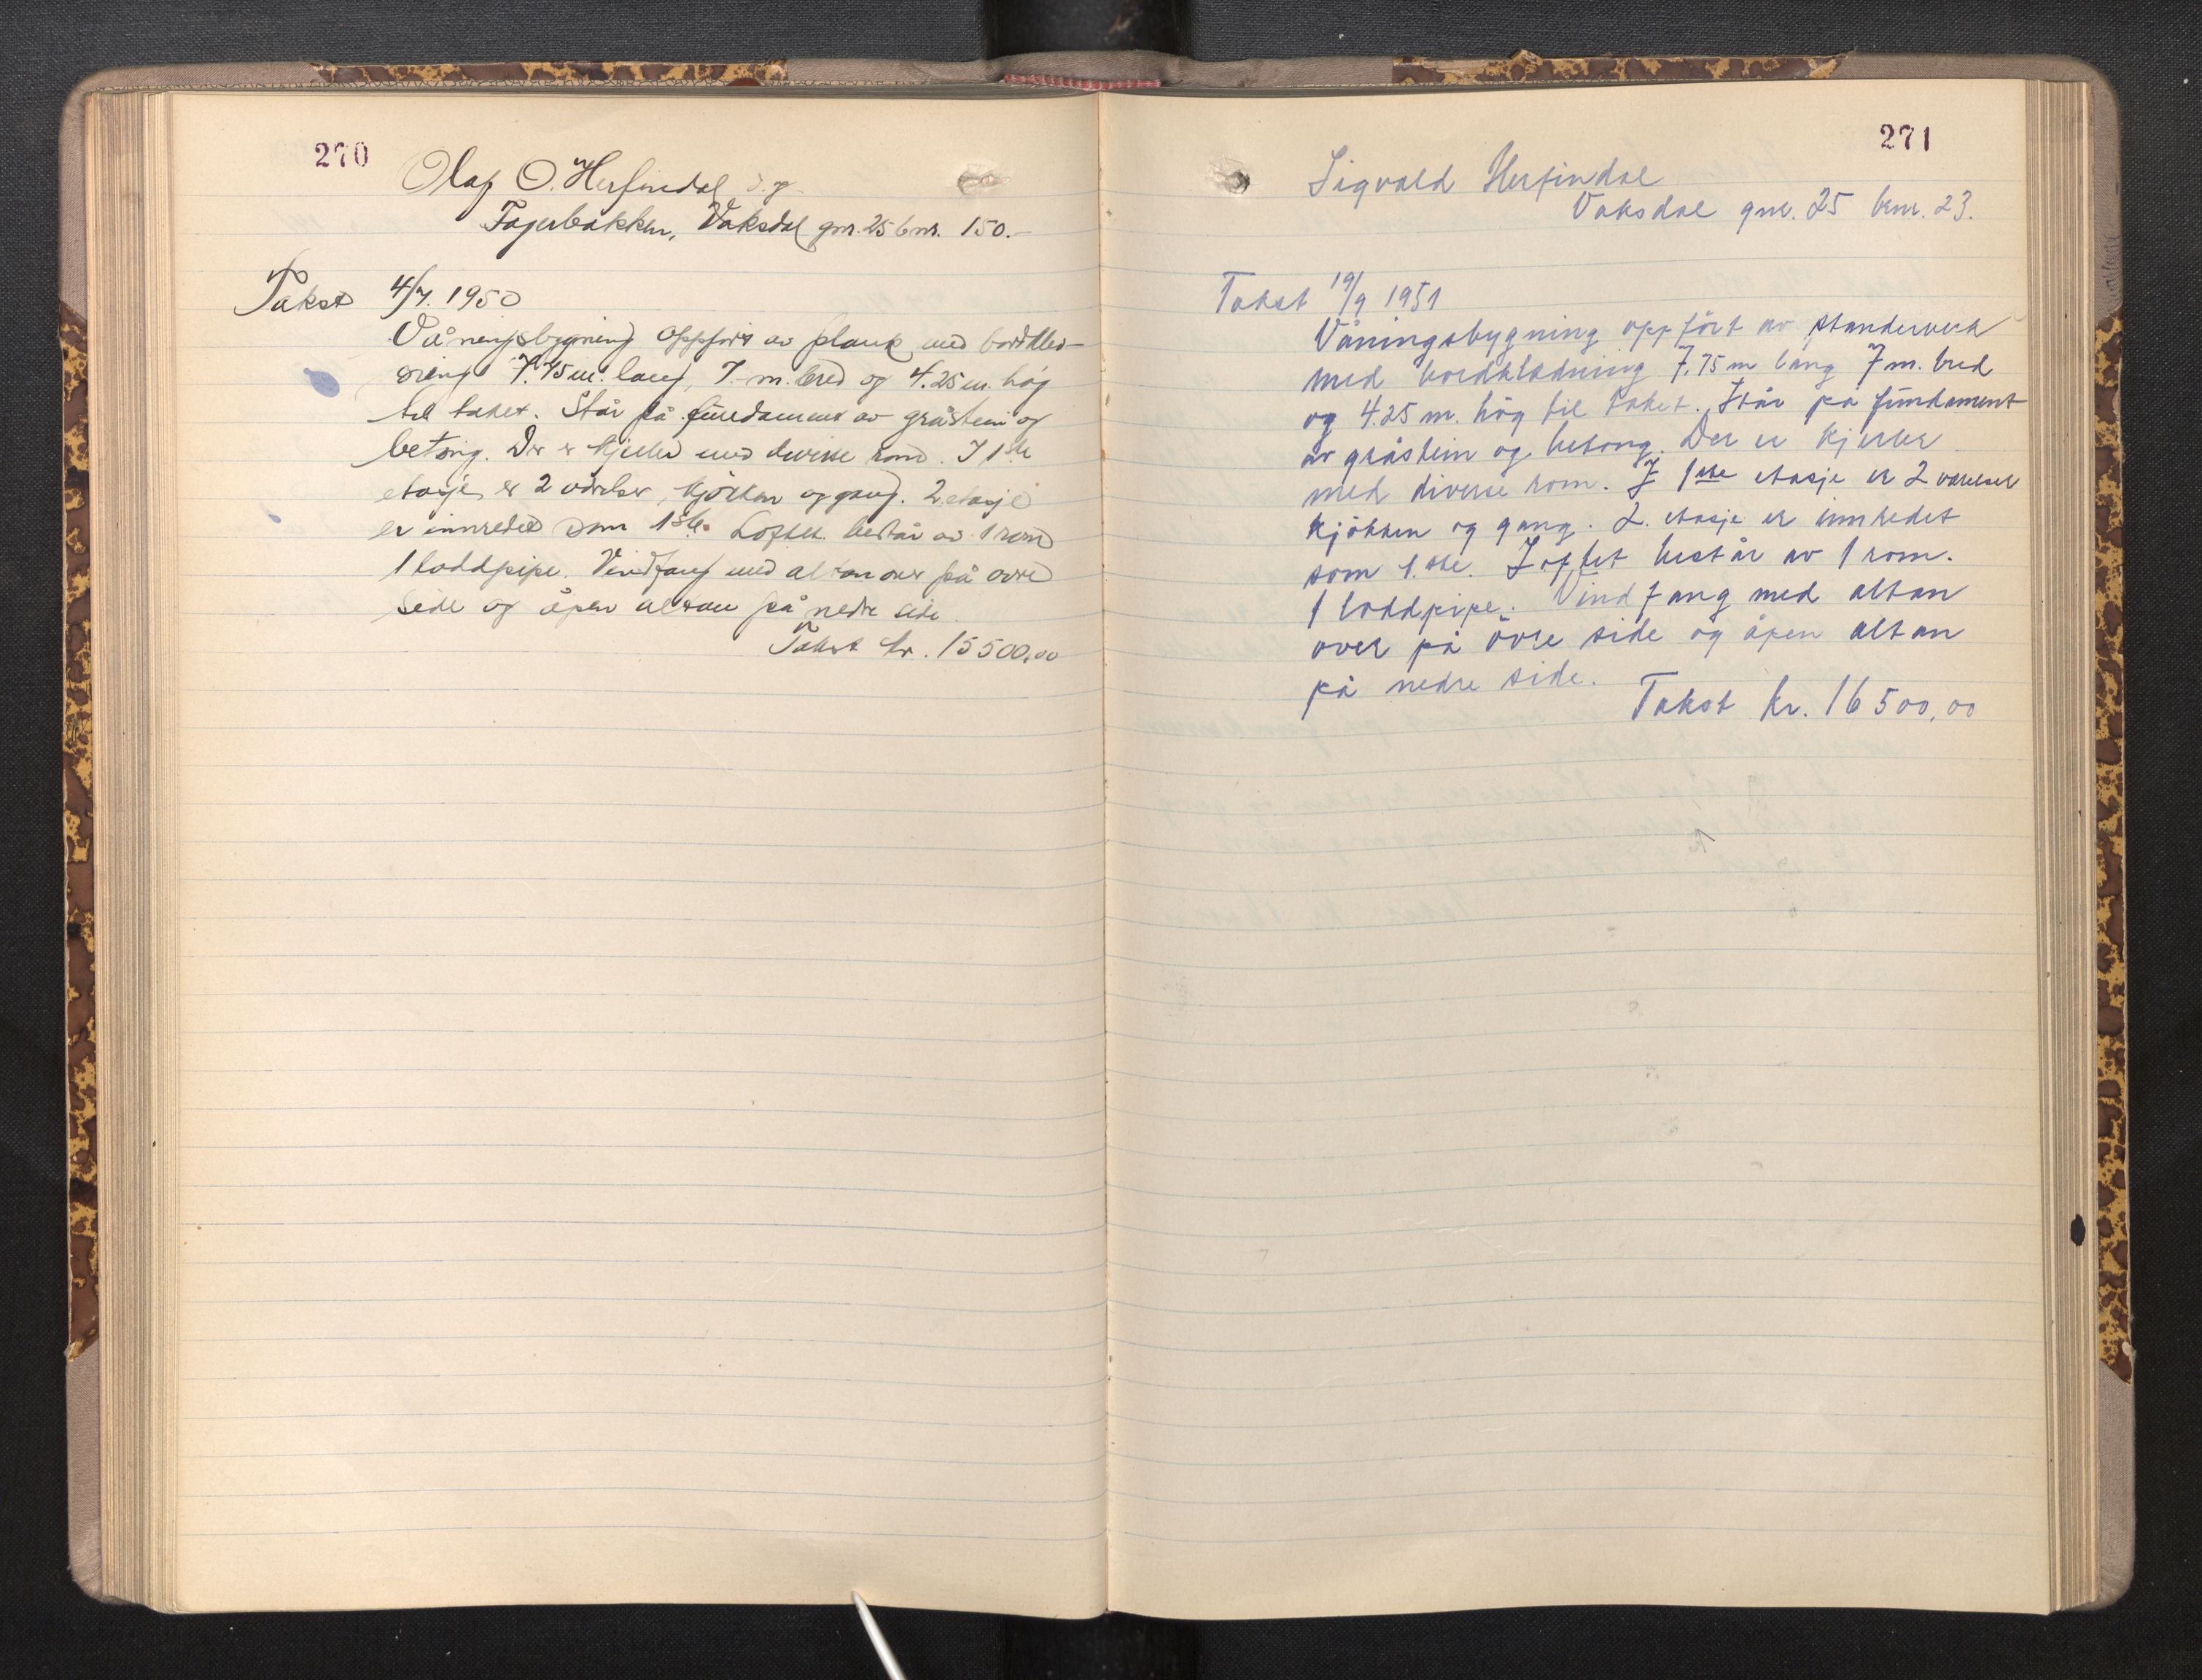 270
Olaf O. Herfindal d.y.
Fagerbakken, Vaksdal gnr. 25 bnr. 150.-
Takst 4/7. 1950
Våningsbygning oppført av plank med bordkled-
ning 7.75 m. lang, 7 m. bred og 4.25 m. høg
til taket. Står på fundament av gråstein og
betong. Der er kjeller med diverse rom. I 1ste
etasje er 2 værelser, kjökken og gang. 2 etasje
er innredet som 1ste. Loftet består av 1 rom
1 loddpipe. Vindfang med altan over på övre
side og åpen altan på nedre side.
Takst kr. 15500,00
271
Sigvald Herfindal
Vaksdal gnr. 25 bnr. 23.
Takst 19/9 1951
Våningsbygning oppfört av standerverk
med bordkledning 7,75 m lang 7 m. bred
og 4.25 m. hög til taket. Står på fundament
av gråstein og betong. Der er kjeller
med diverse rom. I 1ste etasje er 2 værelser
kjökken og gang. 2. etasje er innredet
som 1.ste. Loftet består av 1 rom.
1 loddpipe. Vindfang med altan
over på övre side og åpen altan
på nedre side.
Takst kr. 16500,00